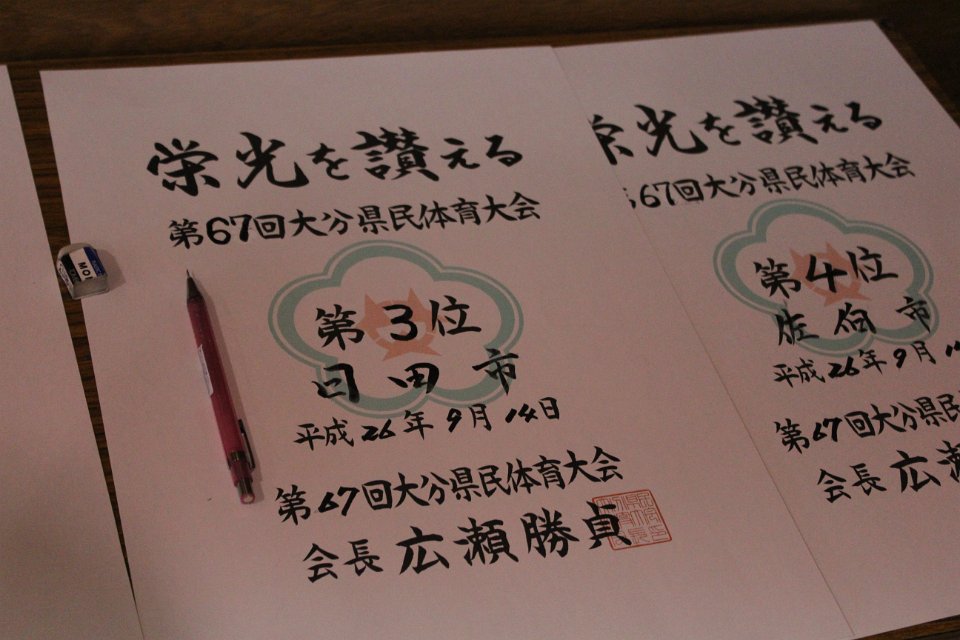 栄光を讃える
第67回大分県民体育大会
第3位
日田市
平成26年9月14日
第67回大分県民体育大会
会長 広瀬勝貞
光を讃える
67回大分県民体育大会
第4位
佐伯市
平成26年9月
第67回大分県民
会長 広
MO